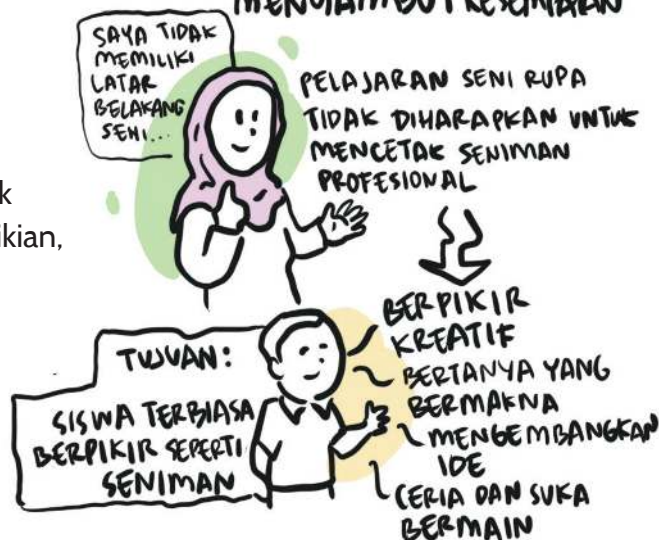 SAYA TIDAK
MEMILIKI
LATAR
BELAKANG
SENI...
PELAJARAN SENI RUPA
TIDAK DIHARAPKAN UNTUK
MENCETAK SENIMAN
PROFESIONAL
k
ikian,
TUJUAN:
SISWA TERBIASA
BERPIKIR SEPERTI
SENIMAN
BERPIKIR
KREATIF
BERTANYA YANG
BERMAKNA
MENGEMBANGKAN
IDE
CERIA DAN SUKA
BERMAIN